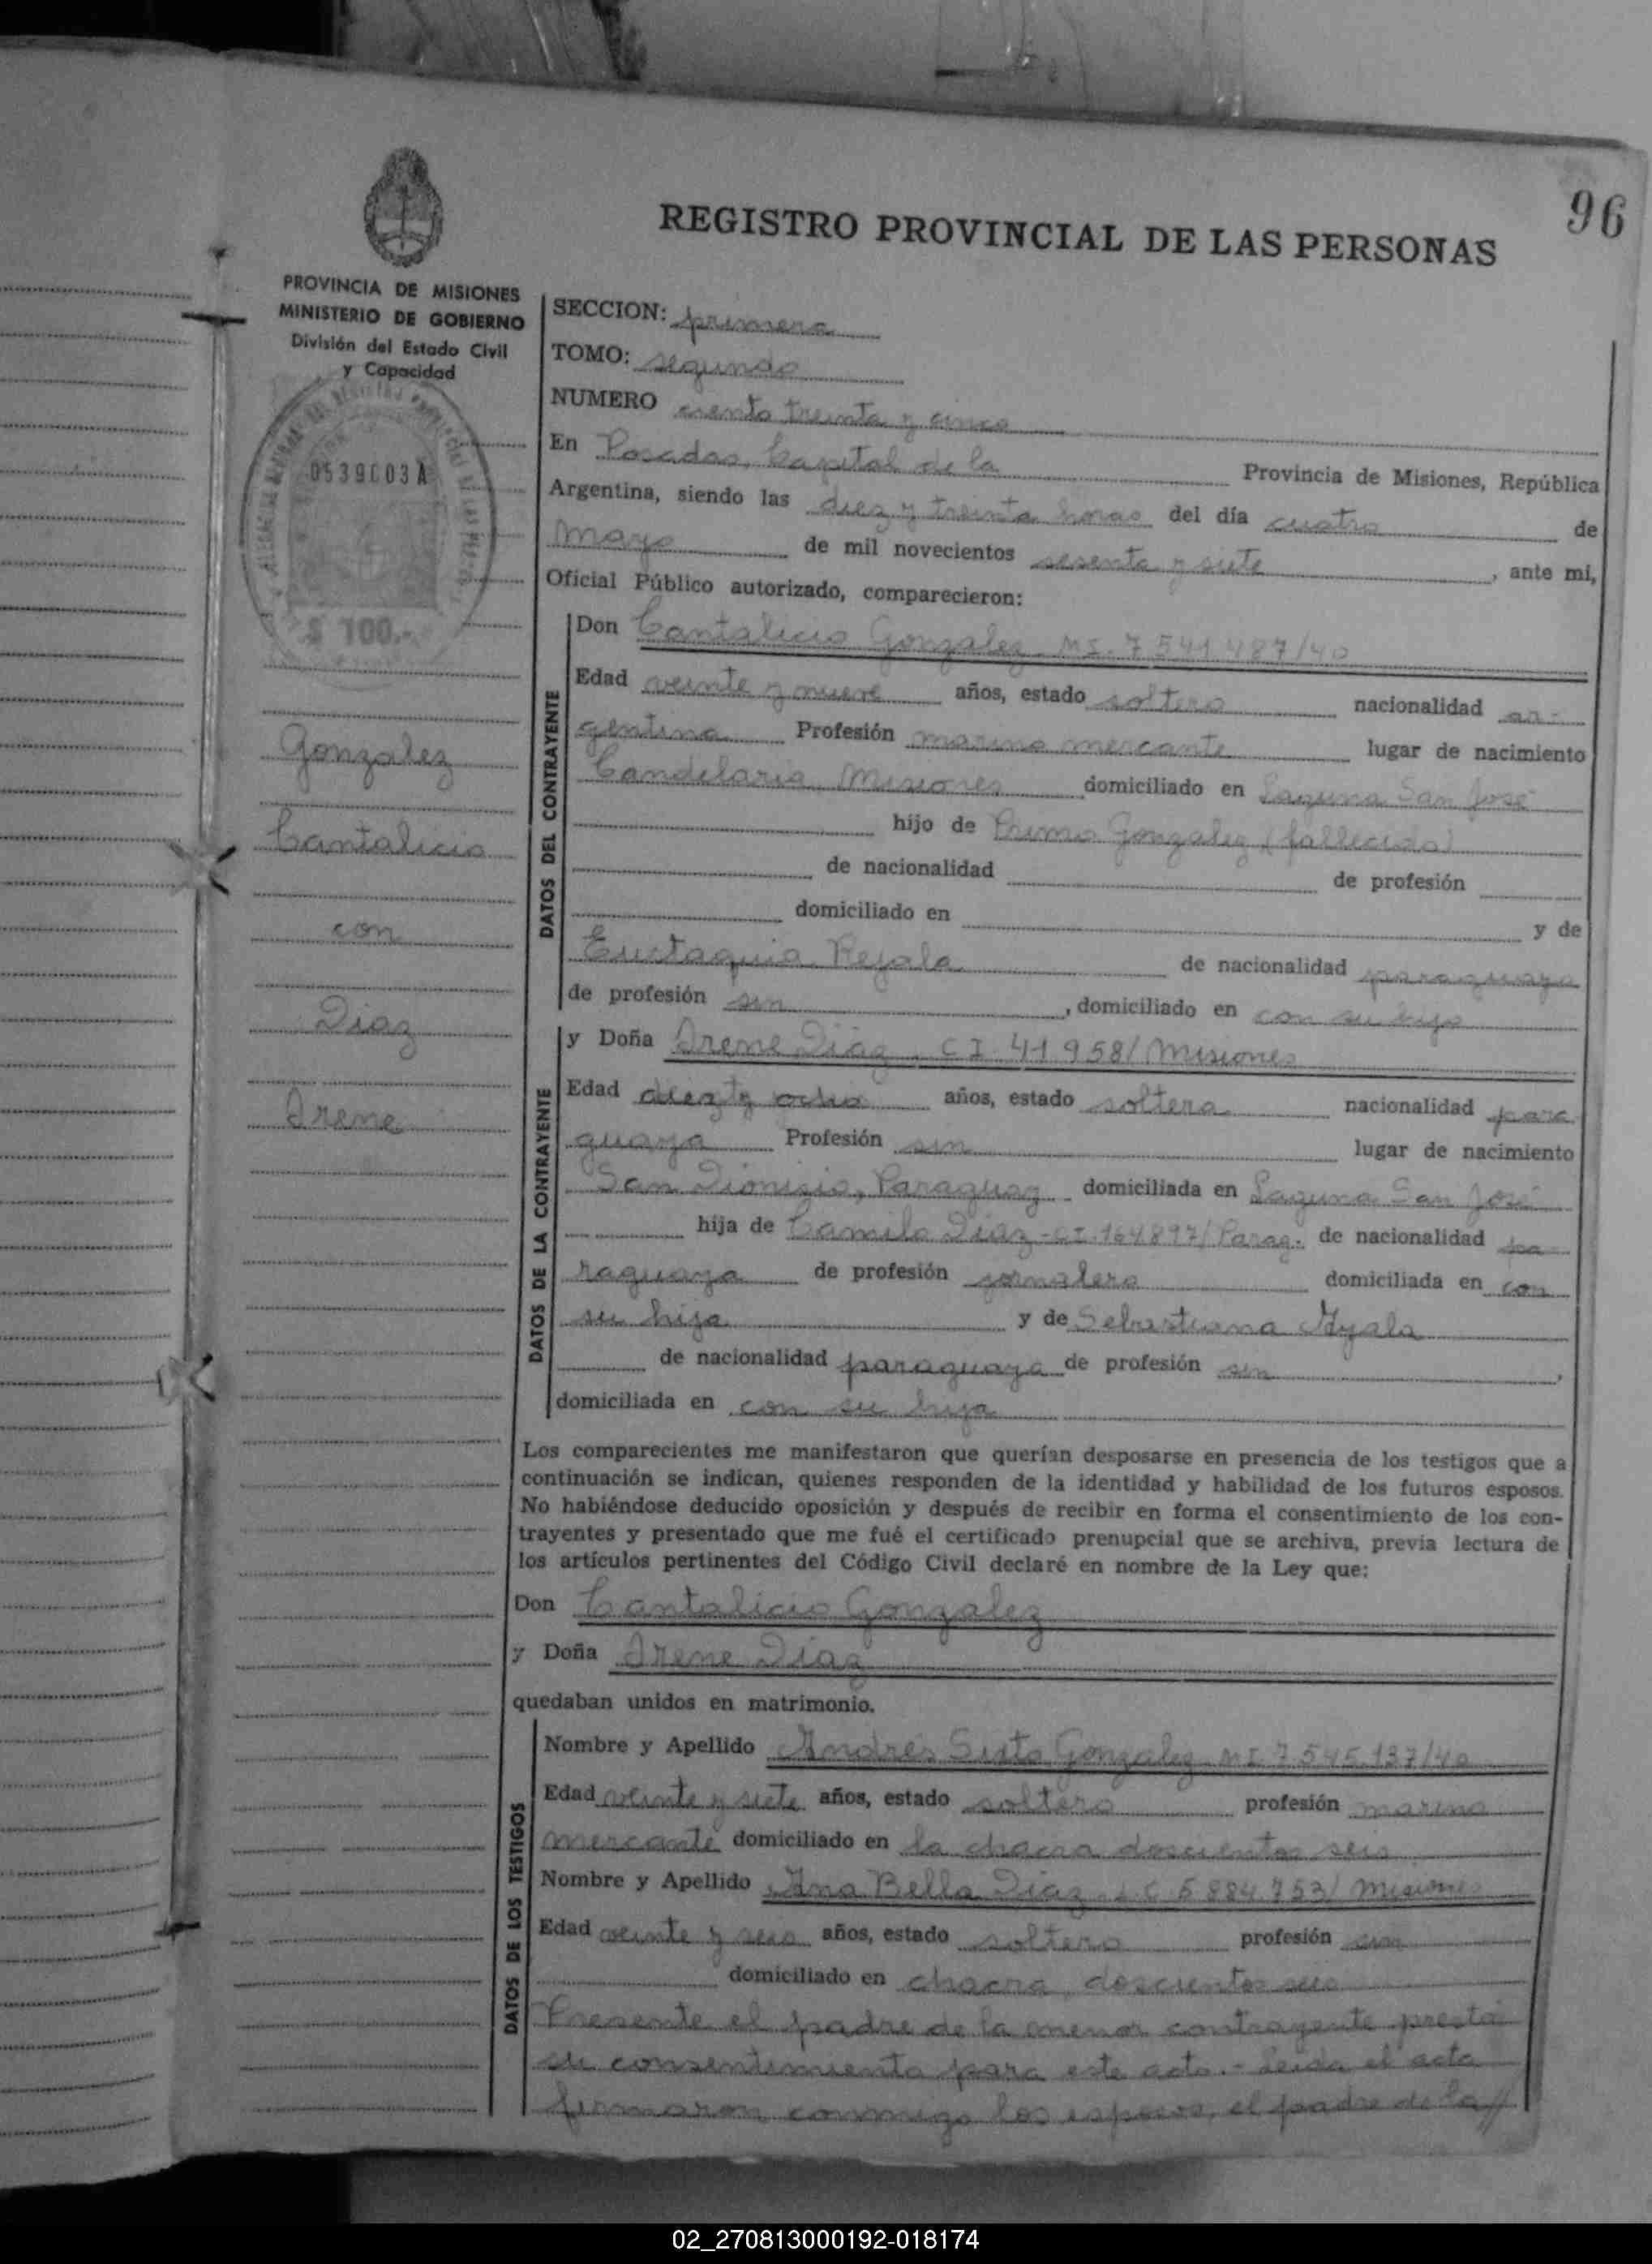 96
REGISTRO PROVINCIAL DE LAS PERSONAS
PROVINCIA DE MISIONES
MINISTERIO DE GOBIERNO
División del Estado Civil
y Capacidad
0539603A
$ 100.-
Gonzalez
Cantalicio
con
Diaz
Irene
SECCION: primera
TOMO: segundo
NUMERO ciento treinta y cinco
En Posadas, Capital de la Provincia de Misiones, República
Argentina, siendo las diez y treinta horas del día cuatro de
mayo de mil novecientos sesenta y siete, ante mí,
Oficial Público autorizado, comparecieron:
DATOS DEL CONTRAYENTE
Don Cantalicio Gonzalez MI. 7.541.487/40
Edad veinte y nueve años, estado soltero nacionalidad ar-
gentina Profesión marino mercante lugar de nacimiento
Candelaria Misiones domiciliado en Laguna San José
hijo de Primo Gonzalez (fallecido)
de nacionalidad de profesión
domiciliado en y de
Eustaquia Rejala de nacionalidad paraguaya
de profesión sin, domiciliado en con su hijo
DATOS DE LA CONTRAYENTE
y Doña Irene Diaz. CI. 41.958/Misiones
Edad diez y ocho años, estado soltera nacionalidad para
guaya Profesión sin lugar de nacimiento
San Dionisio, Paraguay domiciliada en Laguna San José
hija de Camilo Diaz-CI.164897/Parag. de nacionalidad pa
raguaya de profesión jornalero domiciliada en con
su hija y de Sebastiana Ayala
de nacionalidad paraguaya de profesión sin,
domiciliada en con su hija
Los comparecientes me manifestaron que querían desposarse en presencia de los testigos que a
continuación se indican, quienes responden de la identidad y habilidad de los futuros esposos.
No habiéndose deducido oposición y después de recibir en forma el consentimiento de los con-
trayentes y presentado que me fué el certificado prenupcial que se archiva, previa lectura de
los artículos pertinentes del Código Civil declaré en nombre de la Ley que:
Don Cantalicio Gonzalez
y Doña Irene Diaz
quedaban unidos en matrimonio.
DATOS DE LOS TESTIGOS
Nombre y Apellido Andrés Sixto Gonzalez MI. 7.545.137/40
Edad veinte y siete años, estado soltero profesión marino
mercante domiciliado en la chacra doscientos seis
Nombre y Apellido Ana Bella Diaz L.C 5.884.753/Misiones
Edad veinte y seis años, estado soltero profesión sin
domiciliado en chacra doscientos seis
Presente el padre de la menor contrayente prestó
su consentimiento para este acto.- Leída el acta
firmaron conmigo los esposos, el padre de la//
02_270813000192-018174